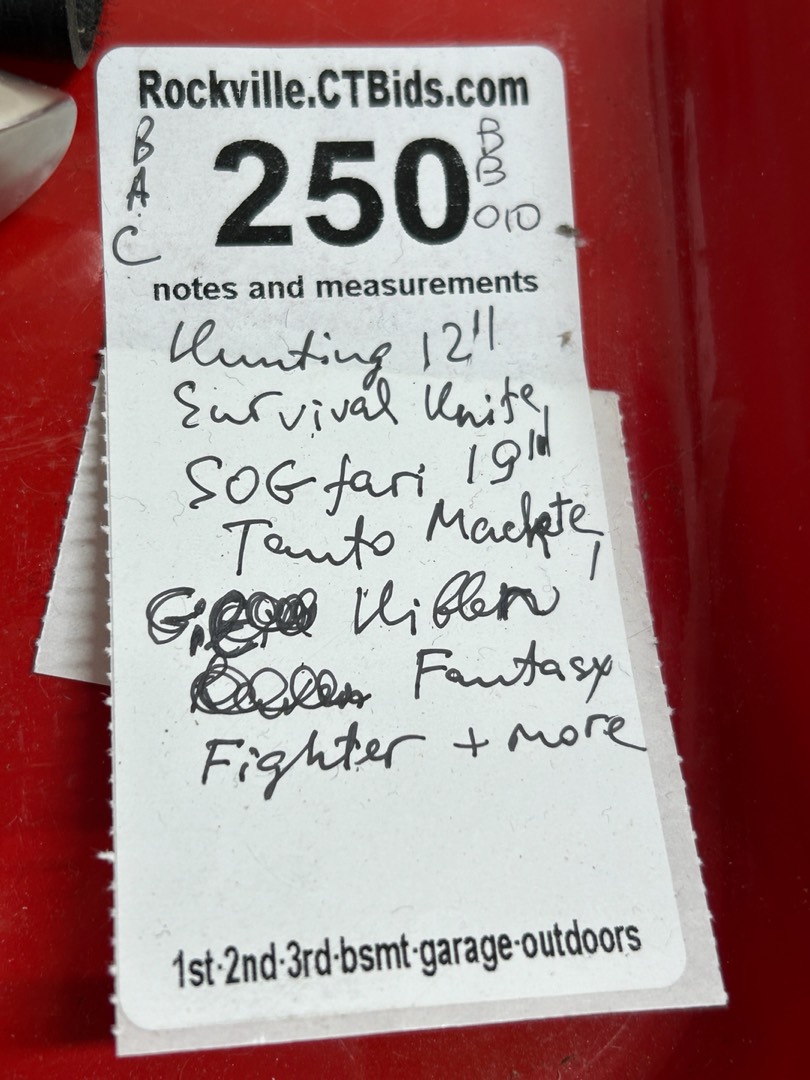 Rockville.CTBids.com
B
A
C
250
B
B
010
notes and measurements
Hunting 12"
Survival Knife,
SOGfari 19"
Tanto Machete,
G. Hibben
Fantasy
Fighter + more
1st·2nd·3rd·bsmt·garage·outdoors